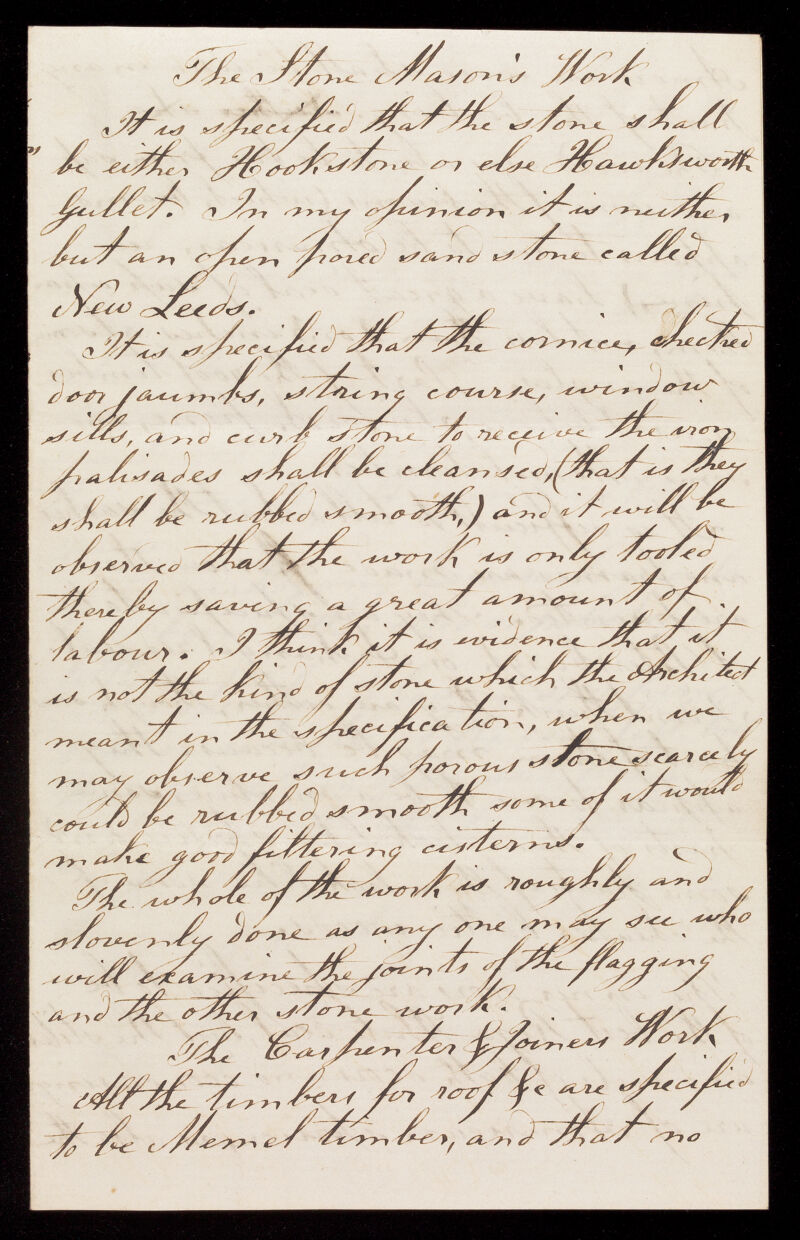 The Stone Mason's Work
It is specified that the stone shall
be either Hookstone or else Hawksworth
Gullet. In my opinion it is neither
but an open pored sand stone called
New Leeds.
It is specified that the cornice, checked
door jaumbs, string course, window
sills, and curb stone to receive the iron
palisades shall be cleansed, (that is they
shall be rubbed smooth,) and it will be
observed that the work is only tooled
thereby saving a great amount of
labour. I think it is evidence that it
is not the kind of stone which the Architect
meant in the specification, when we
may observe such porous stone scarcely
could be rubbed smooth some of it would
make good filtering cisterns.
The whole of the work is roughly and
slovenly done as any one may see who
will examine the joints of the flagging
and the other stone work.
The Carpenter & Joiners Work
All the timbers for roof &c are specified
to be Memel timber, and that no